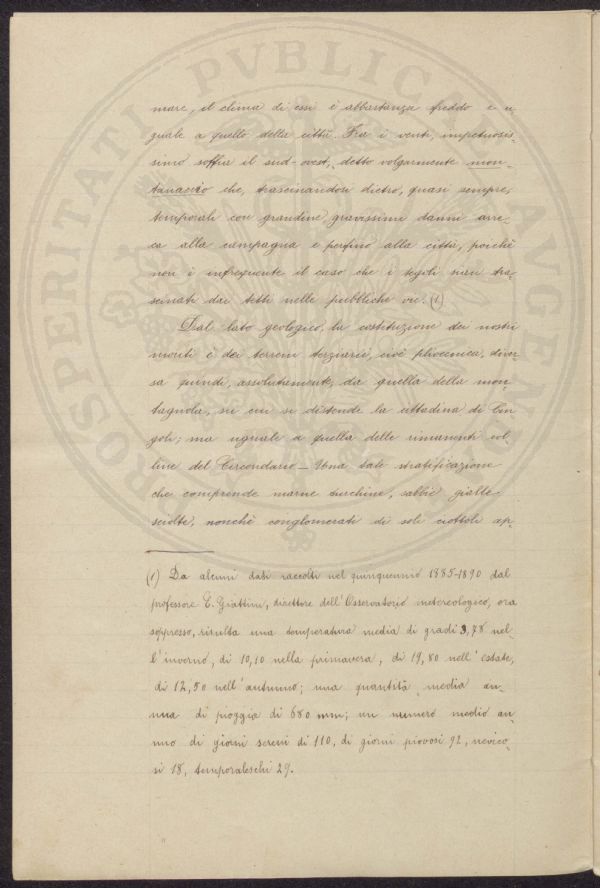 PROSPERITATI PVBLICAE AVGENDAE
mare, il clima di essi è abbastanza freddo e u-
guale a quello della città. Fra i venti, impetuosis-
simo soffia il sud-ovest, detto volgarmente mon-
tanaccio che, trascinandosi dietro, quasi sempre,
temporali con grandine, gravissimi danni arre-
ca alla campagna e perfino alla città, poichè
non è infrequente il caso che i tegoli sian tra-
scinati dai tetti nelle pubbliche vie. (1)
Dal lato geologico, la costituzione dei nostri
monti è dei terreni terziarii, cioè pliocenica, diver-
sa quindi, assolutamente, da quella della mon-
tagnola, su cui si distende la cittadina di Cin-
goli; ma uguale a quella delle rimanenti col-
line del Circondario – Una tale stratificazione
che comprende marne turchine, sabbie gialle
sciolte, nonchè conglomerati di soli ciottoli ap-
(1) Da alcuni dati raccolti nel quinquennio 1885-1890 dal
professore E. Giattini, direttore dell'Osservatorio meteorologico, ora
soppresso, risulta una temperatura media di gradi 3,78 nel-
l'inverno, di 10,10 nella primavera, di 19,80 nell'estate,
di 12,50 nell'autunno; una quantità media an-
nua di pioggia di 680 mm; un numero medio an-
nuo di giorni sereni di 110, di giorni piovosi 92, nevico-
si 18, temporaleschi 29.